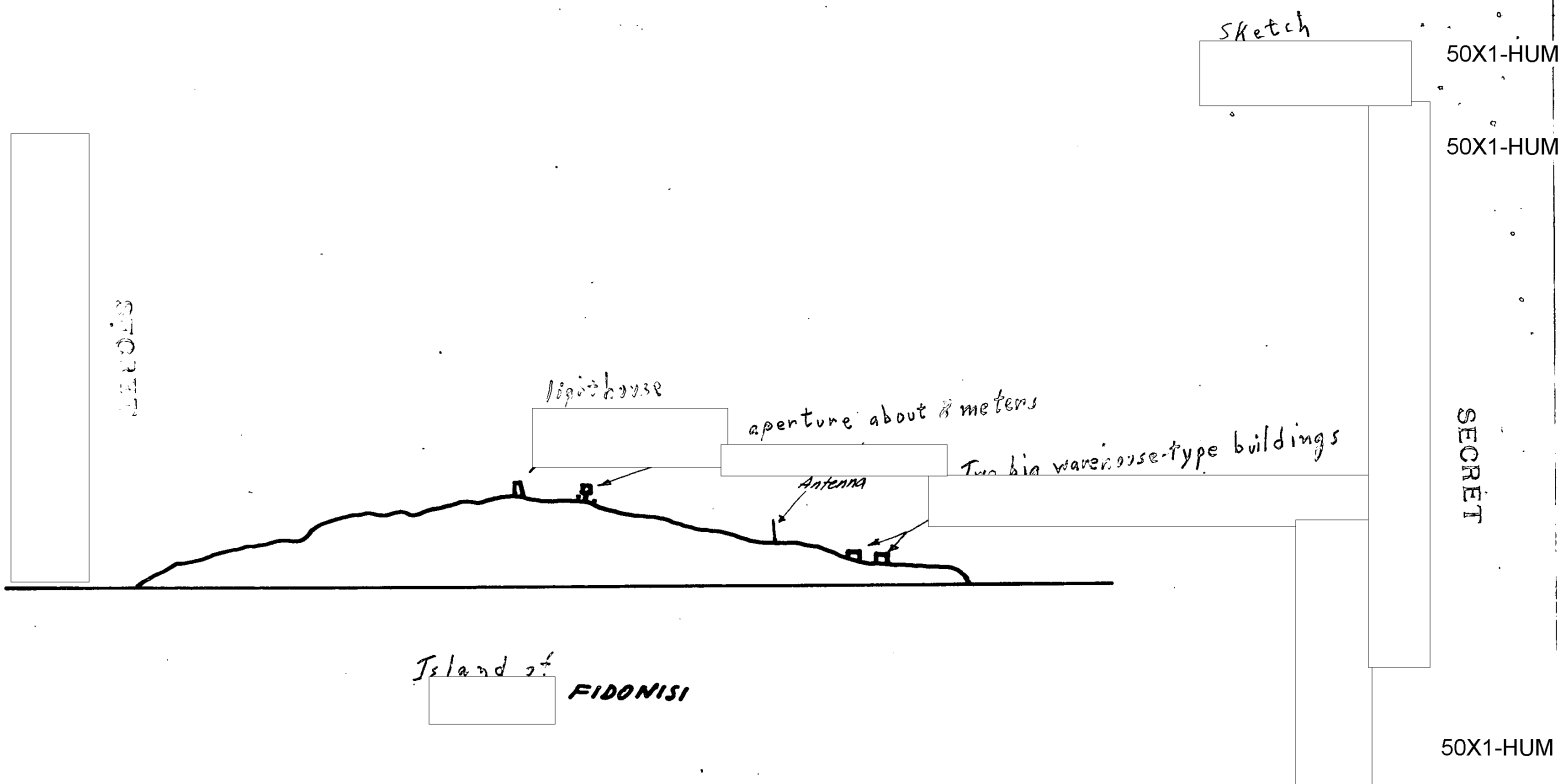 Sketch
50X1-HUM
50X1-HUM
SECRET
lighthouse
aperture about 8 meters
Two big warehouse-type buildings
Antenna
SECRET
Island of
FIDONISI
50X1-HUM